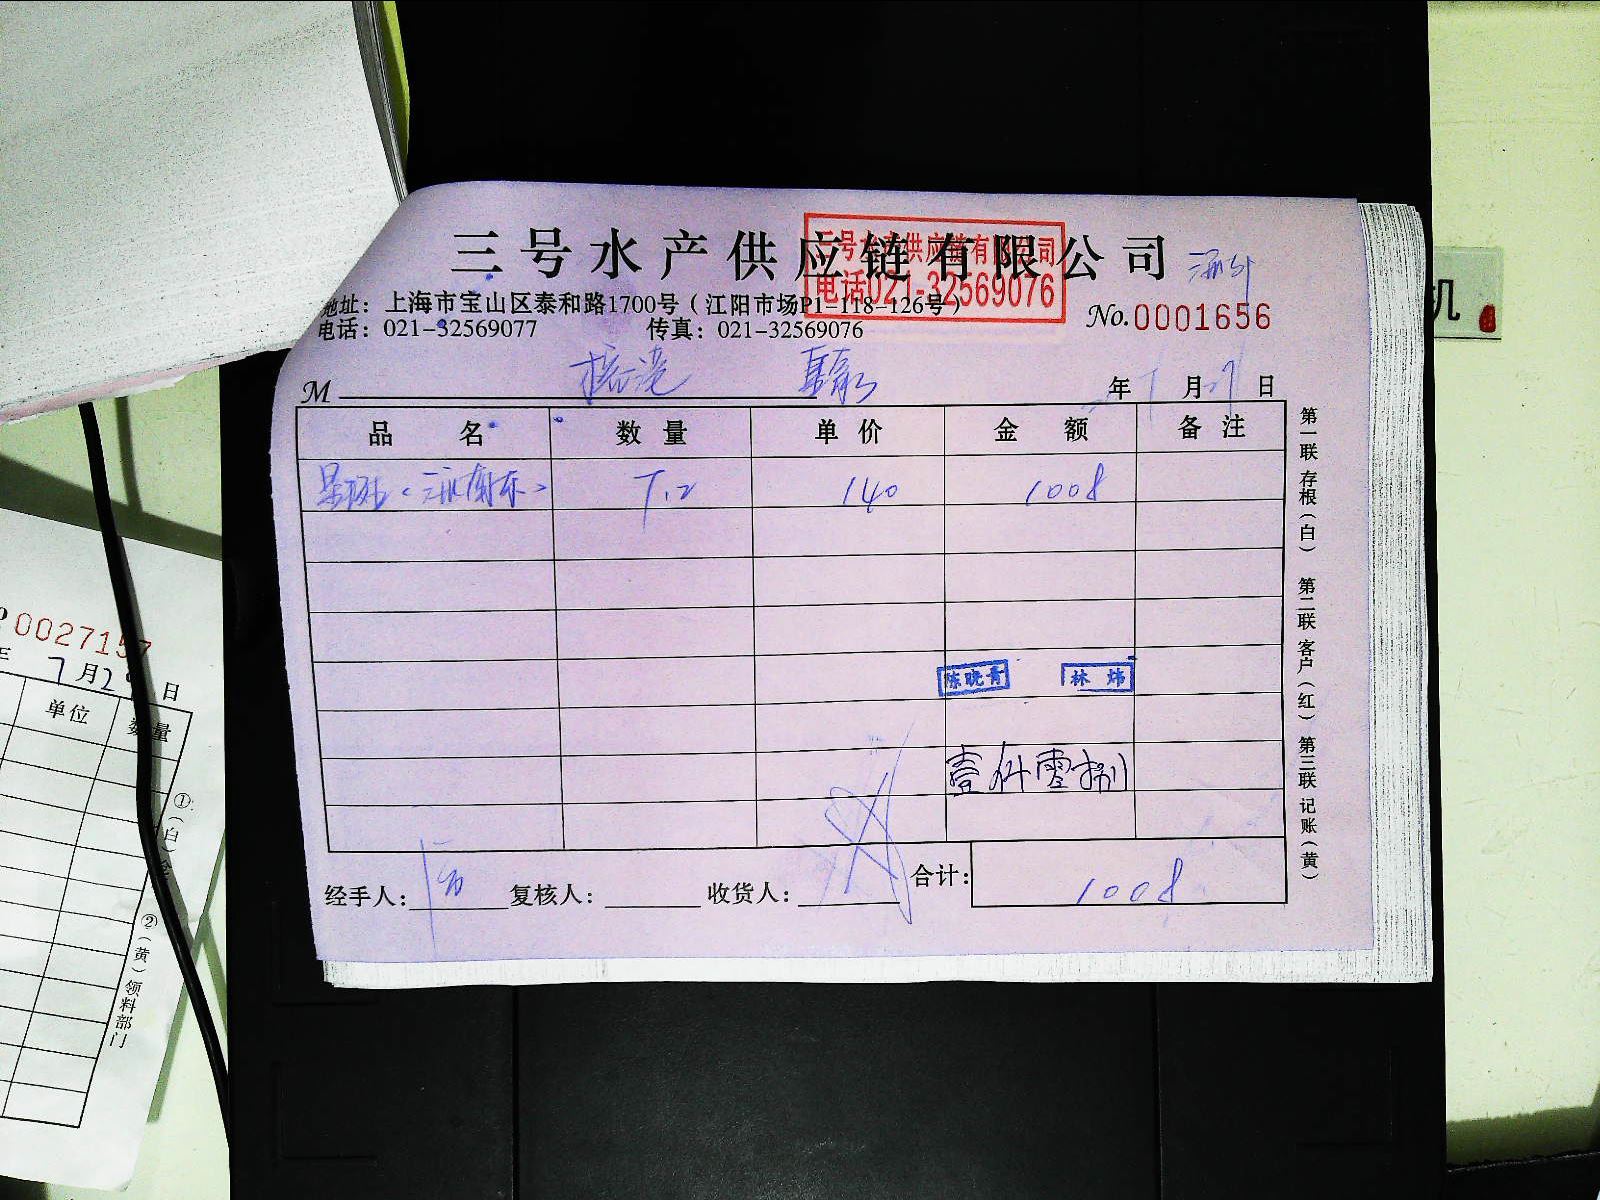 三号水产供应链有限公司
三号水产供应链有限公司
电话021-32569076
地址：上海市宝山区泰和路1700号（江阳市场P1-118-126号）
电话：021-32569077 传真：021-32569076
No.0001656
机
M
年 7 月 29 日
品 名 数 量 单 价 金 额 备 注
7.2 140 1008
陈晓青 林炜
壹仟零捌
经手人： 复核人： 收货人： 合计： 1008
第一联 存根（白） 第二联 客户（红） 第三联 记账（黄）
0027157
7月29日
单位 数量
①（白）
②（黄）领料部门